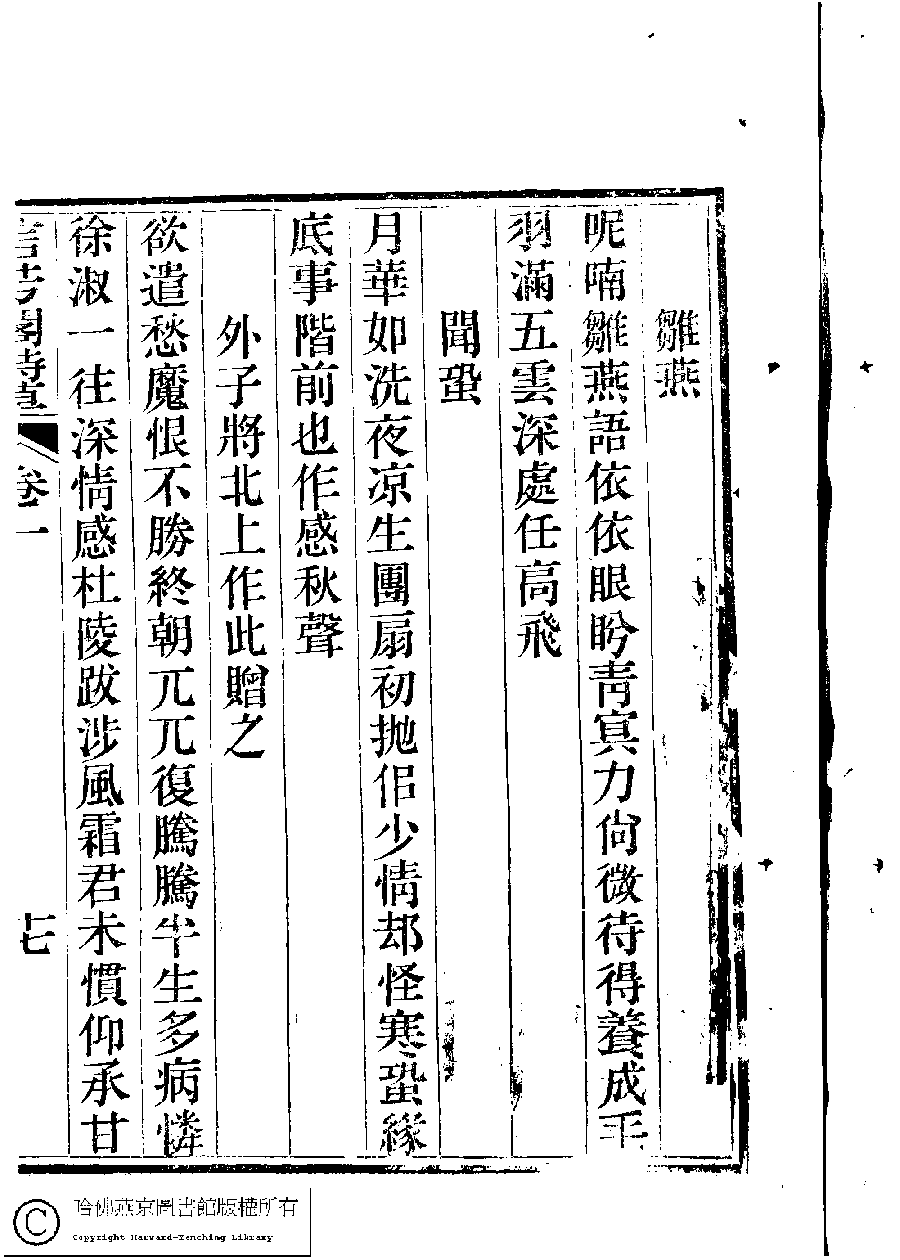 雛燕
呢喃雛燕語依依眼盻青冥力尙微待得養成平
羽滿五雲深處任高飛
聞蛩
月華如洗夜凉生團扇初抛佀少情却怪寒蛩緣
底事階前也作感秋聲
外子將北上作此贈之
欲遣愁魔恨不勝終朝兀兀復騰騰半生多病憐
徐淑一往深情感杜陵跋涉風霜君未慣仰承甘
卷一
十七
哈佛燕京圖書館版權所有
Copyright Harvard-Yenching Library